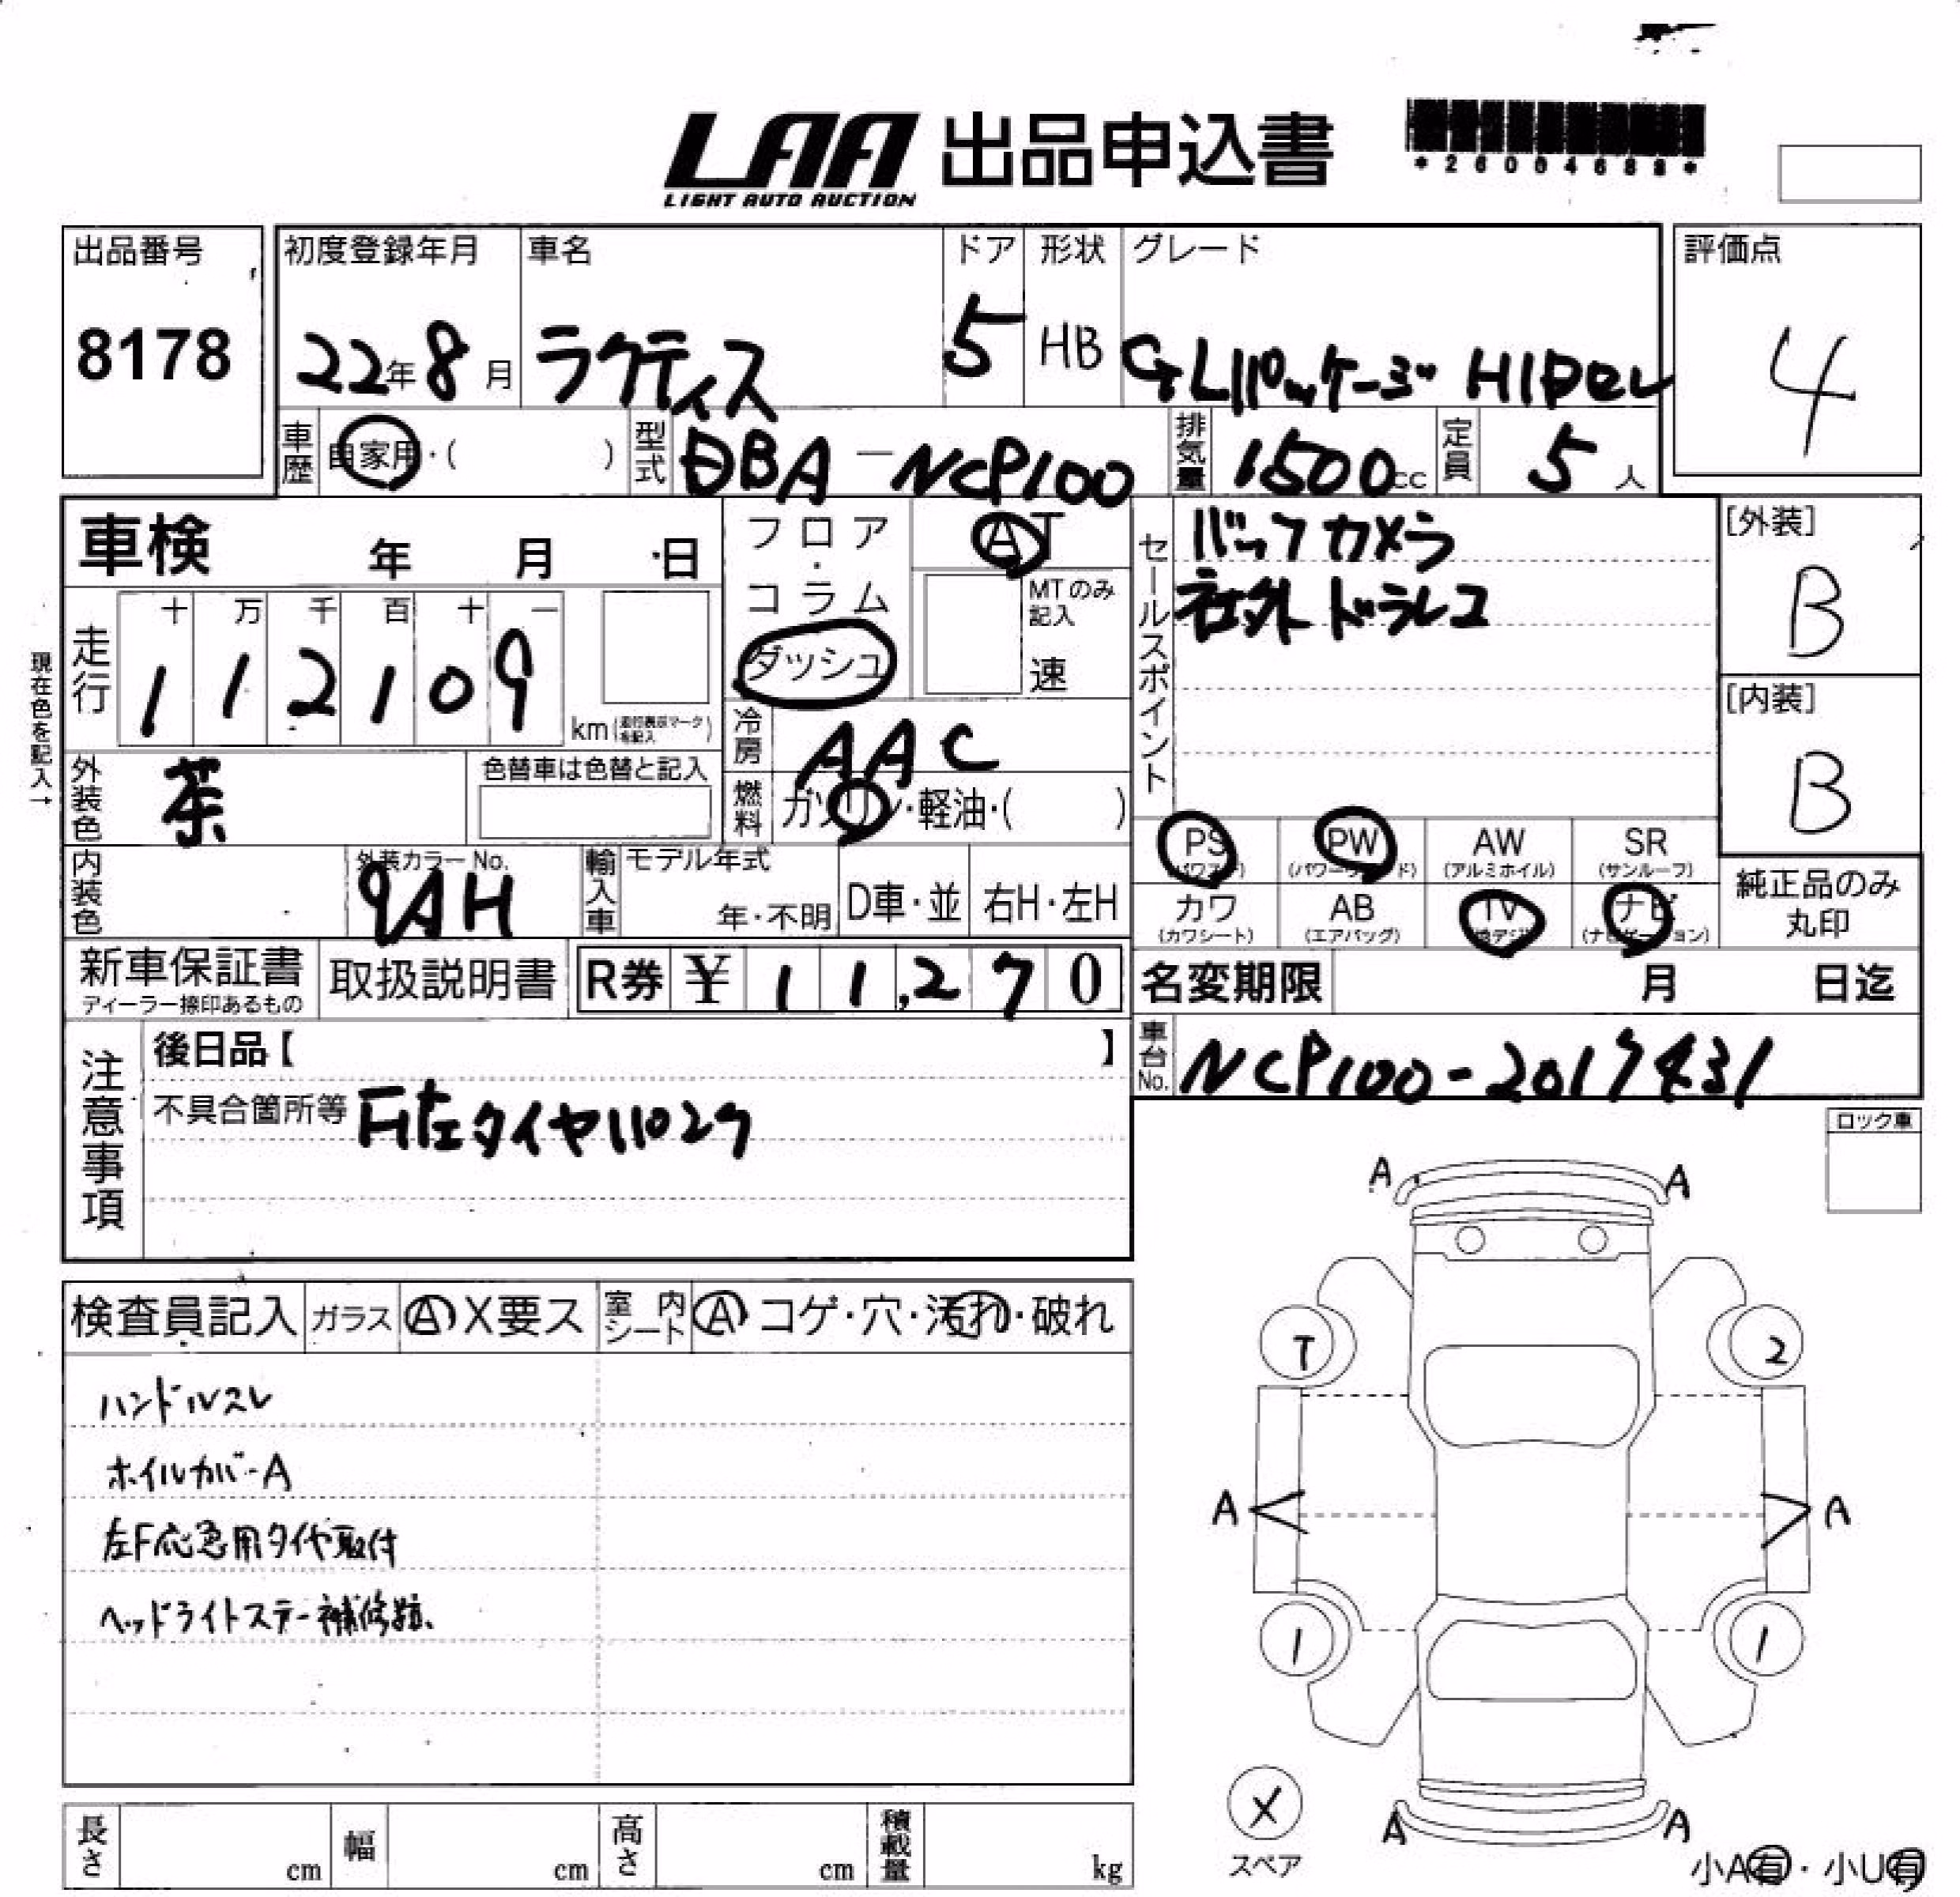 LAA 出品申込書
LIGHT AUTO AUCTION
*2600468
出品番号 初度登録年月 車名 ドア 形状 グレード 評価点
8178 22年8月 ラクティス 5 HB G Lパッケージ HIDセレ 4
車歴 自家用・( ) 型式 DBA-NCP100 排気量 1500cc 定員 5人
車検 年 月 日 フロア・コラム ダッシュ AT
MTのみ記入 速
セールスポイント
バックカメラ
社外ドラレコ
[外装]
B
[内装]
B
現在色を記入→
走行 十 万 千 百 十 一
1 1 2 1 0 9 km(走行表示マークを記入)
冷房 AAC
外装色 茶 色替車は色替と記入
燃料 ガソリン・軽油・( )
PS PW AW SR
(パワステ) (パワーウィンド) (アルミホイル) (サンルーフ)
カワ AB TV ナビ
(カワシート) (エアバッグ) (地デジ) (ナビゲーション)
純正品のみ丸印
内装色 外装カラーNo. 9AH 輸入車 モデル年式 年・不明 D車・並 右H・左H
新車保証書 取扱説明書 R券 ¥ 11,270 名変期限 月 日迄
ディーラー捺印あるもの
車台No. NCP100-2017431
注意事項
後日品【 】
不具合箇所等 F左タイヤ
ロック車
A A
検査員記入 ガラス A X要ス 室内シート A コゲ・穴・汚れ・破れ
ハンドルスレ
ホイルカバーA
左F応急用タイヤ取付
ヘッドライトステー補修跡、
T 2
A A
1 1
X
スペア
A A
小A有・小U有
長さ cm 幅 cm 高さ cm 積載量 kg